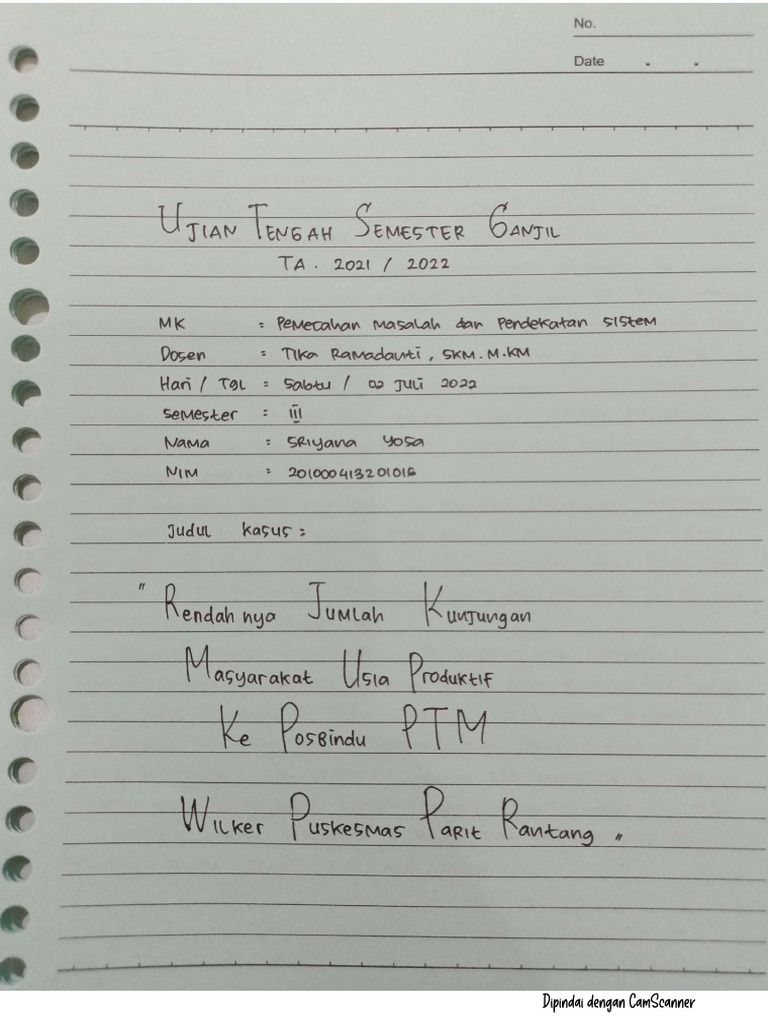 No.
Date . .
UJIAN TENGAH SEMESTER GANJIL
TA. 2021 / 2022
MK : Pemecahan Masalah dan Pendekatan Sistem
Dosen : Tika Ramadanti, SKM. M.KM
Hari / Tgl : Sabtu / 02 Juli 2022
Semester : III
Nama : Sriyana Yosa
NIM : 201000413201016
Judul Kasus :
" Rendah nya Jumlah Kunjungan
Masyarakat Usia Produktif
Ke Posbindu PTM
Wilker Puskesmas Parit Rantang "
Dipindai dengan CamScanner